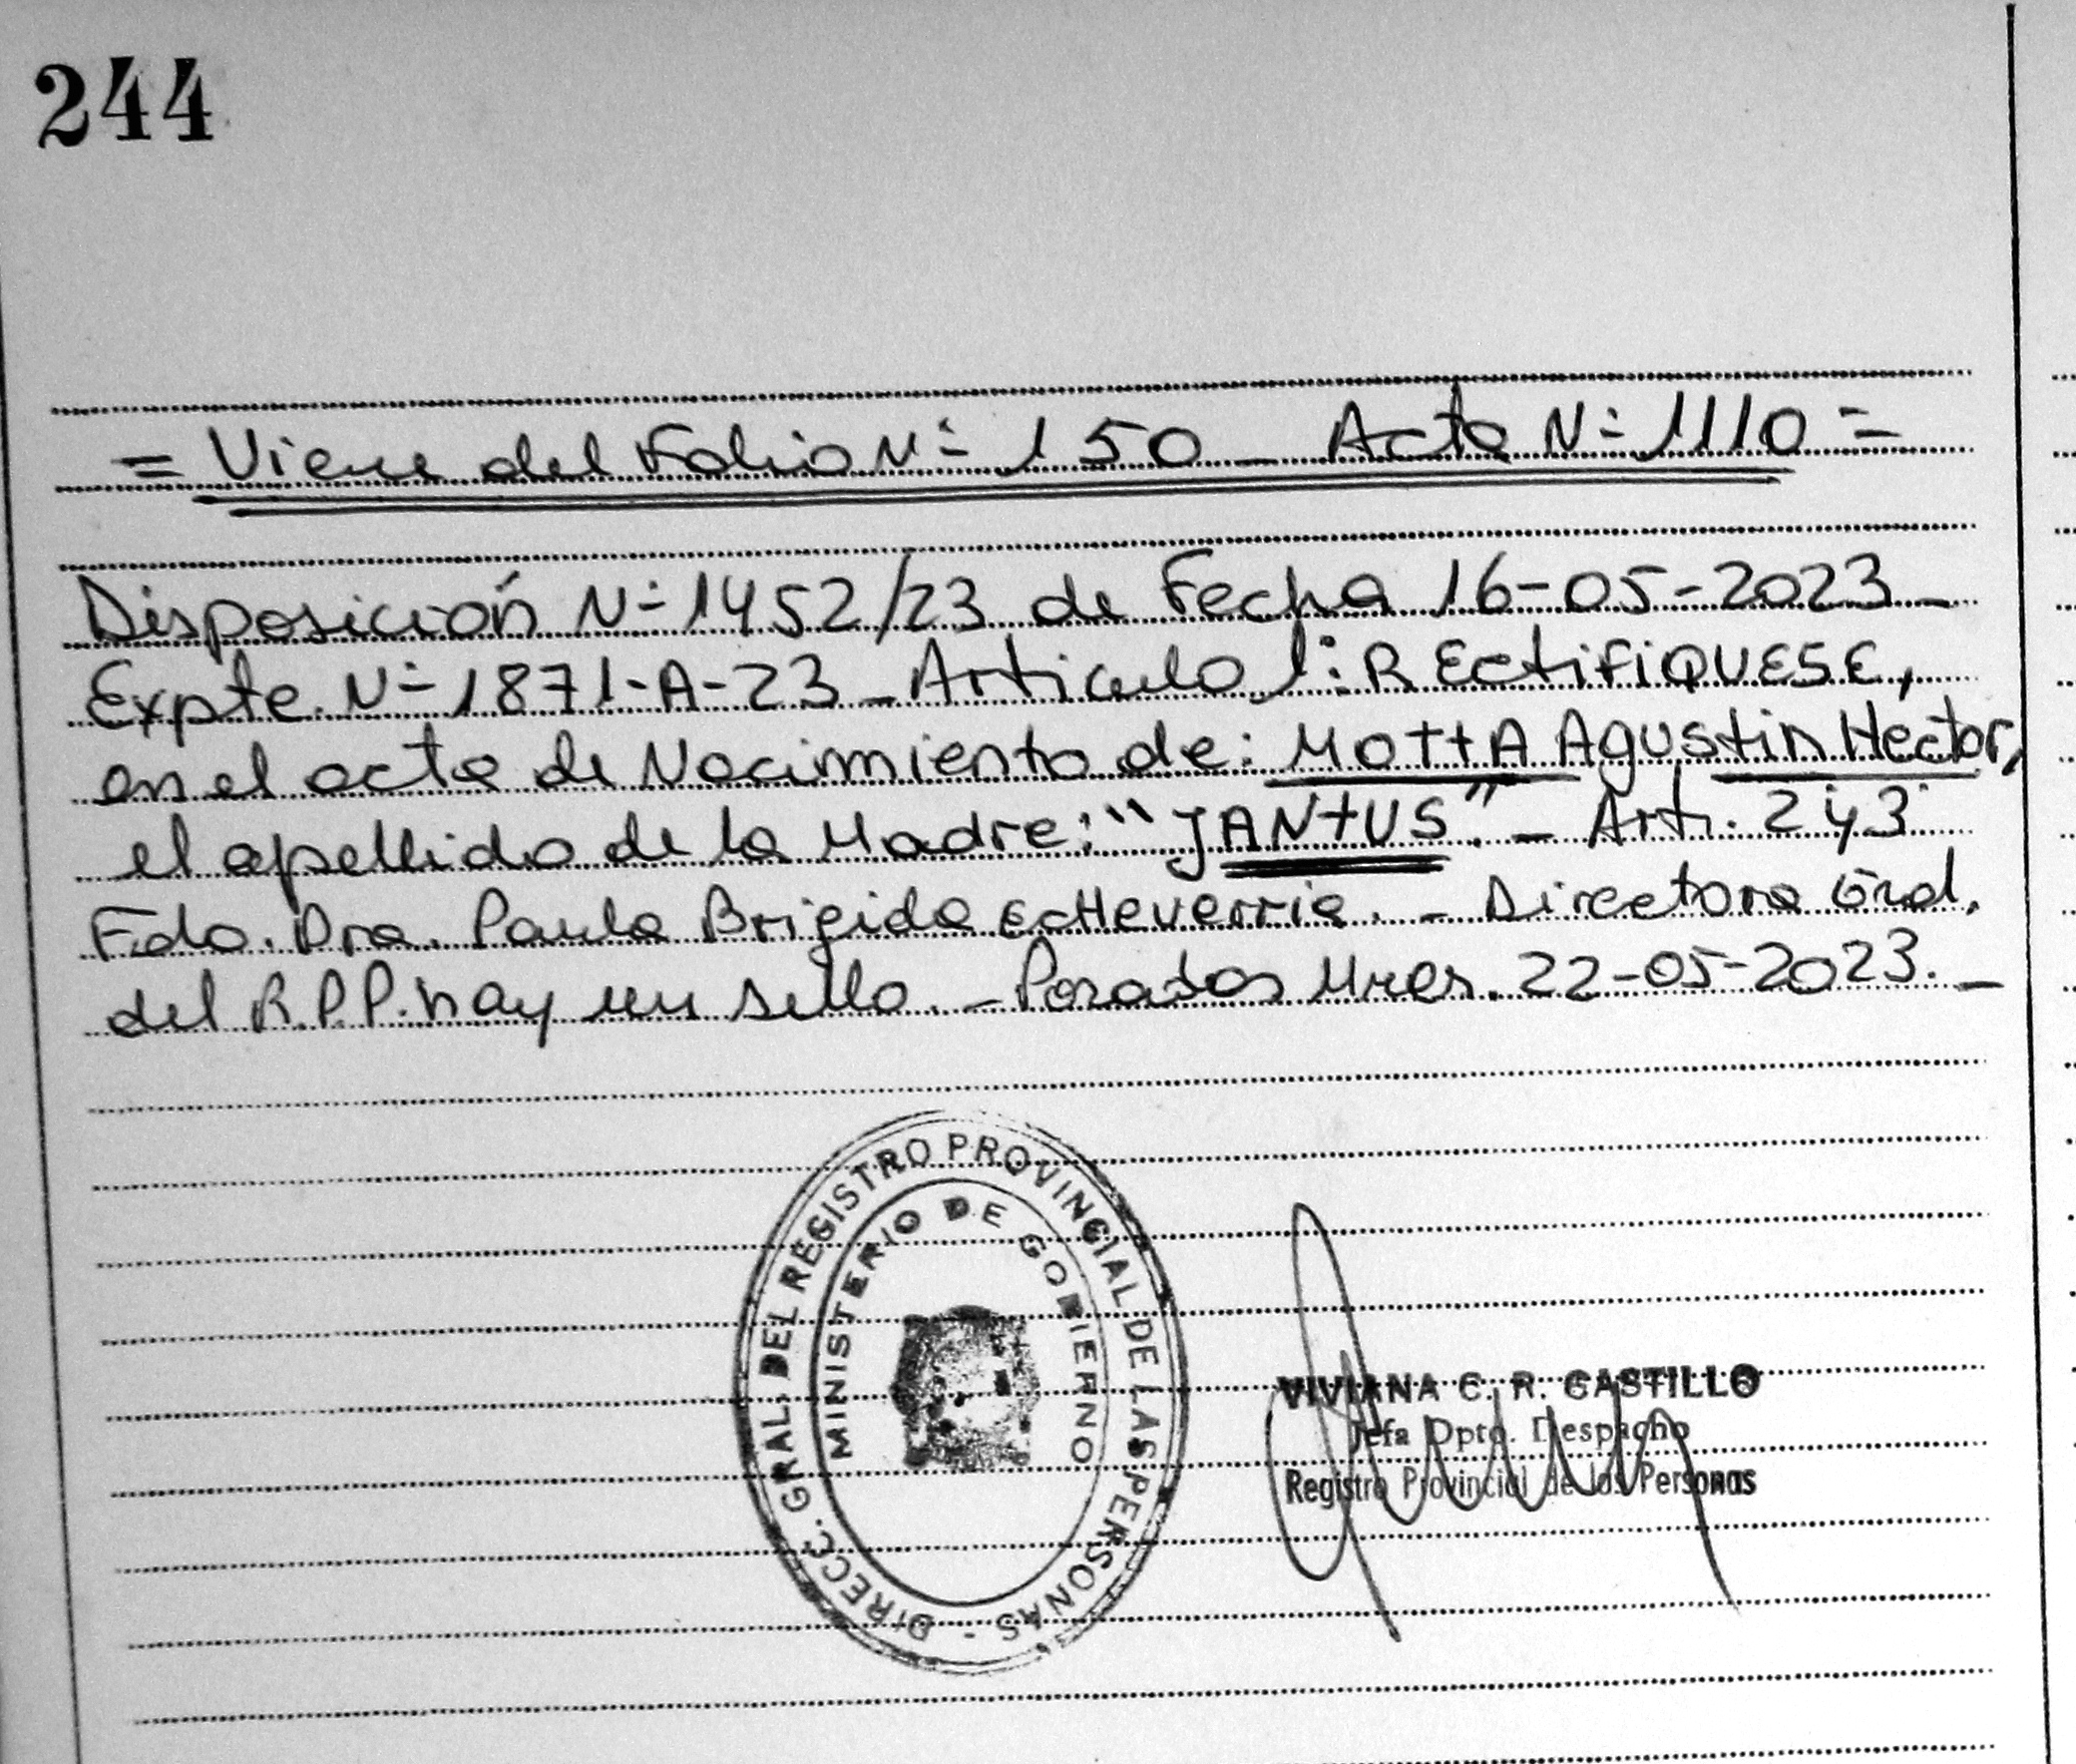 244
= Viene del Folio N=150 - Acta N=1110 =
Disposición N=1452/23 de Fecha 16-05-2023-
Expte. N=1871-A-23-Articulo 1: RECtiFiQUESE,
en el acta de Nacimiento de: MOttA Agustin Hector,
el apellido de la Madre: "JANtUS". - Art. 2 y 3
Fdo. Dra. Paula Brigida EcHeverria. - Directora Gral.
del R.P.P. hay un sello. - Posadas Mnes. 22-05-2023. -
DIRECC. GRAL. DEL REGISTRO PROVINCIAL DE LAS PERSONAS -
MINISTERIO DE GOBIERNO
VIVIANA C. R. CASTILLO
Jefa Dpto. Despacho
Registro Provincial de las Personas